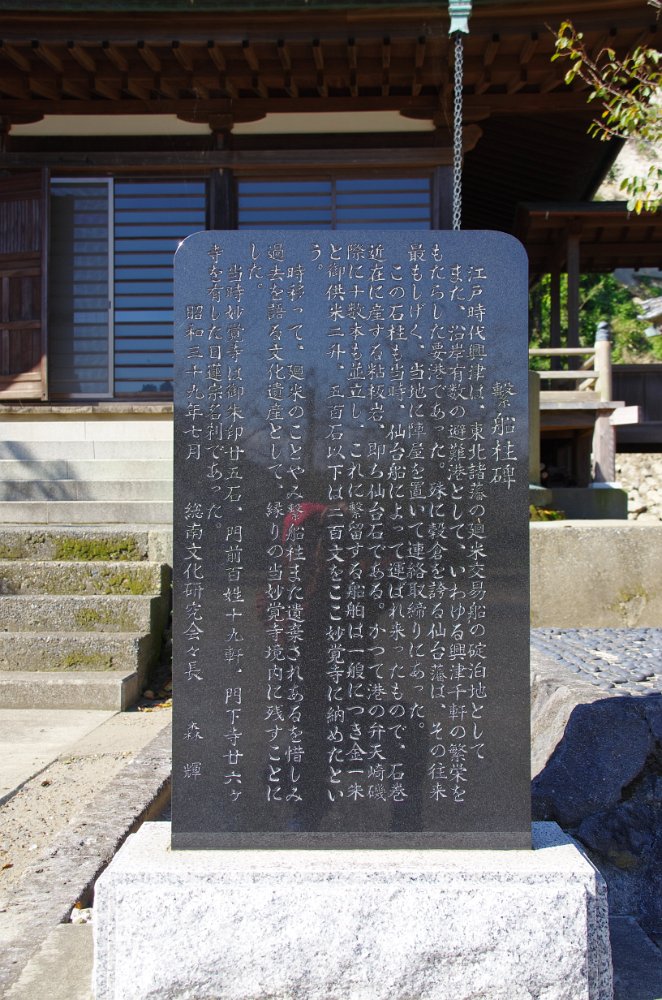 繋船柱碑
江戸時代興津は、東北諸藩の廻米交易船の碇泊地として
また、沿岸有数の避難港として、いわゆる興津千軒の繁栄を
もたらした要港であった。殊に穀倉を誇る仙台藩は、その往来
最もしげく、当地に陣屋を置いて連絡取締りにあった。
この石柱も当時、仙台船によって運ばれ来ったもので、石巻
近在に産する粘板岩、即ち仙台石である。かつて港の弁天崎磯
際に十数本も並立し、これに繋留する船舶は一般につき金一朱
と御供米二升、五百石以下は二百文をここ妙覚寺に納めたとい
う。
時移って、廻米のことやみ繋船柱また遺棄されあるを惜しみ
過去を語る文化遺産として、縁りの当妙覚寺境内に残すことに
した。
当時妙覚寺は御朱印廿五石、門前百姓十九軒、門下寺廿六ヶ
寺を有した日蓮宗名刹であった。
昭和三十九年七月 総南文化研究会々長 森 輝